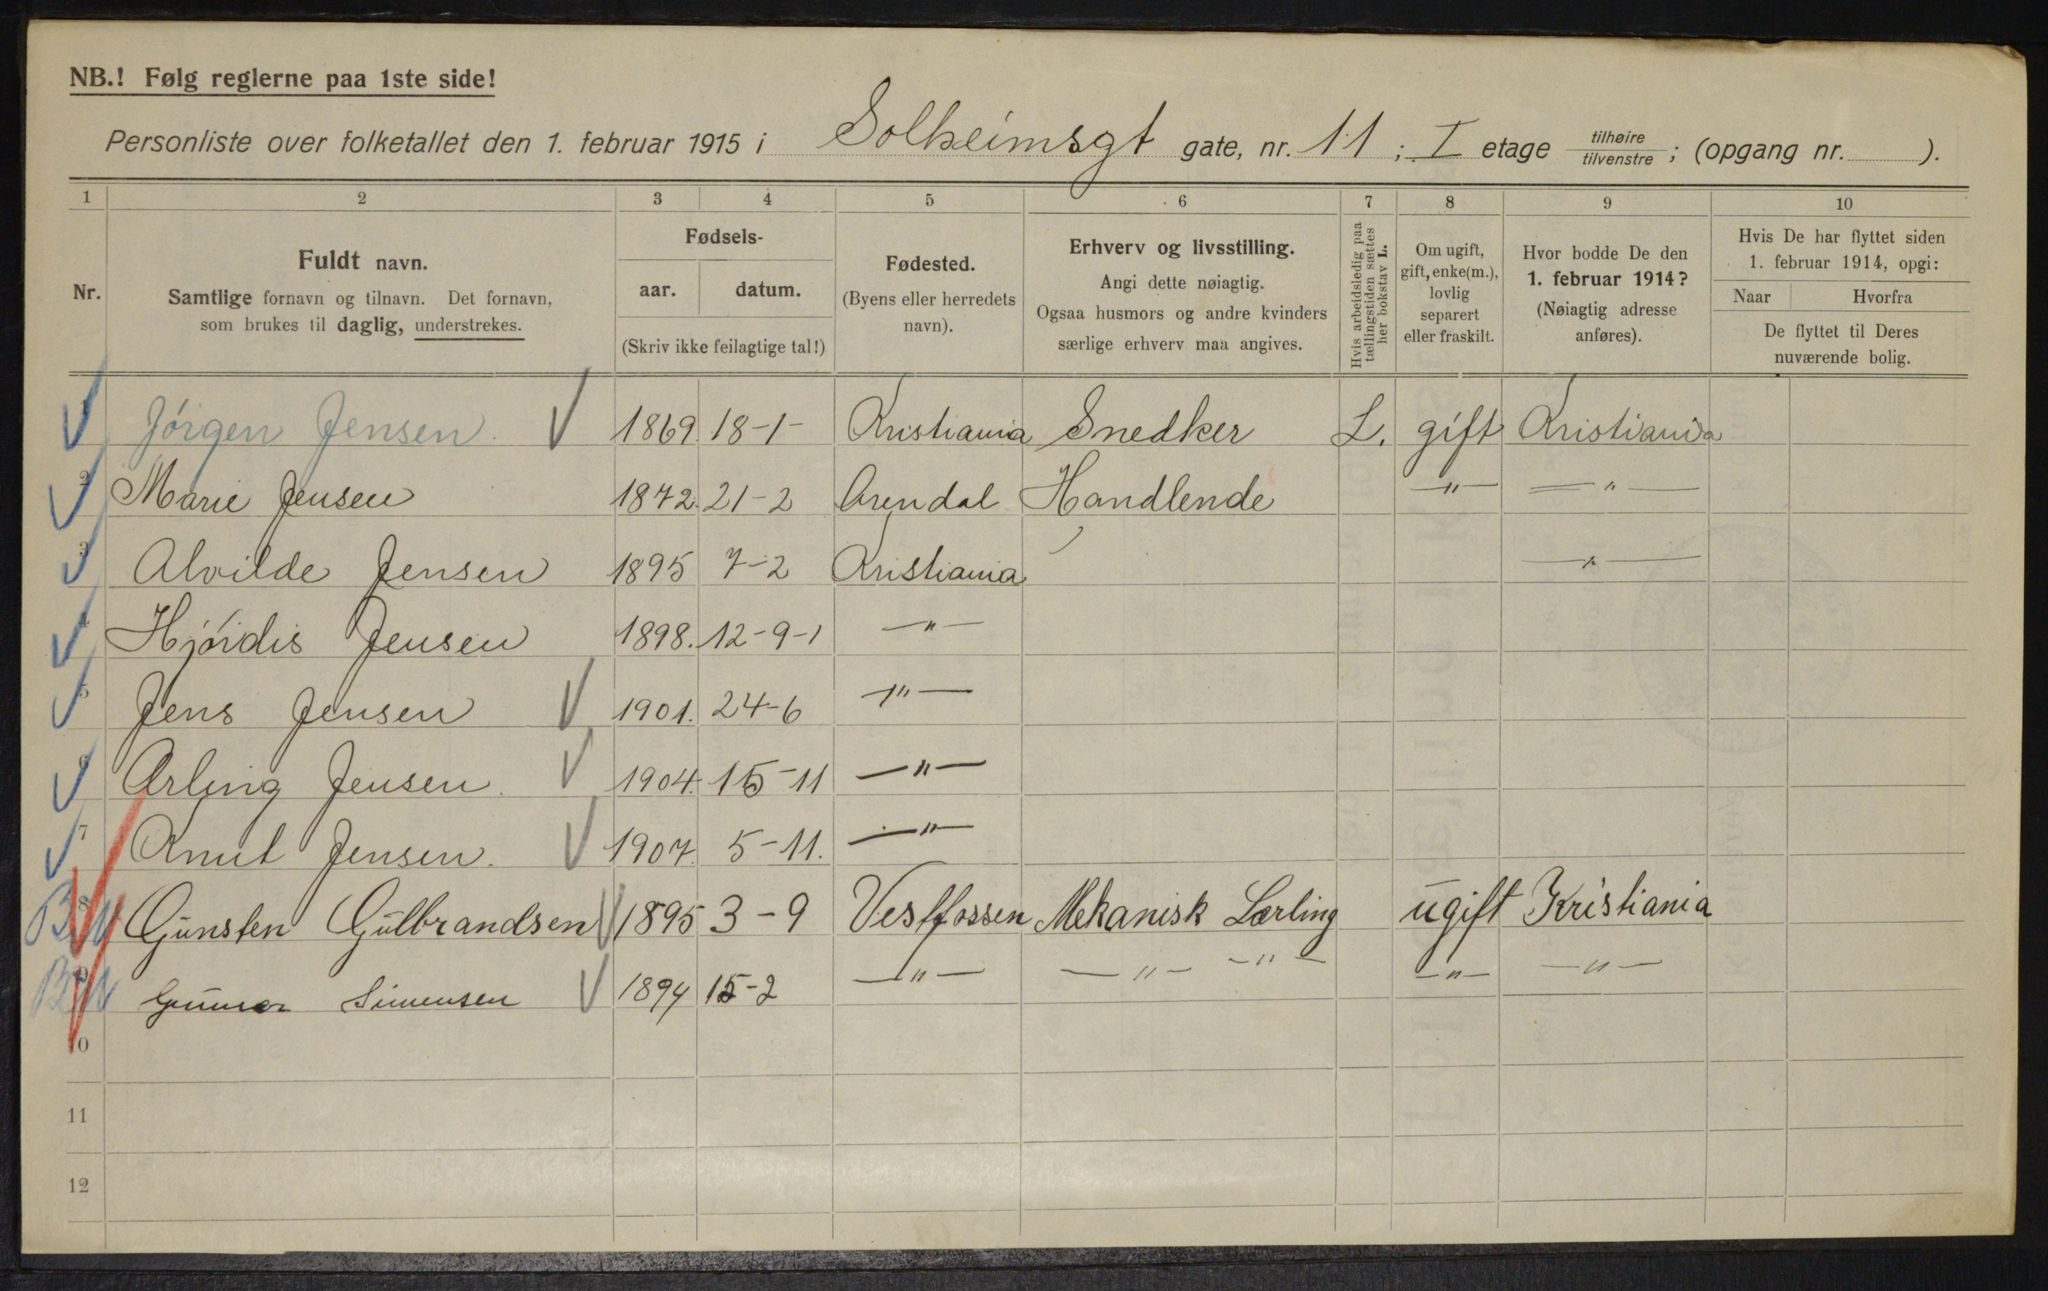 NB.! Følg reglerne paa 1ste side!
Personliste over folketallet den 1. februar 1915 i Solheimsgt gate, nr. 11 ; I etage tilhøire / tilvenstre ; (opgang nr. ).
1 2 3 4 5 6 7 8 9 10
Nr. Fuldt navn. Samtlige fornavn og tilnavn. Det fornavn, som brukes til daglig, understrekes.
Fødsels- aar. datum. (Skriv ikke feilagtige tal!)
Fødested. (Byens eller herredets navn).
Erhverv og livsstilling. Angi dette nøiagtig. Ogsaa husmors og andre kvinders særlige erhverv maa angives.
Hvis arbeidsledig paa tællingstiden sættes her bokstav L.
Om ugift, gift, enke(m.), lovlig separert eller fraskilt.
Hvor bodde De den 1. februar 1914? (Nøiagtig adresse anføres).
Hvis De har flyttet siden 1. februar 1914, opgi: Naar Hvorfra De flyttet til Deres nuværende bolig.
1 Jórgen Jensen. 1869. 18-1- Kristiania Snedker L. gift Kristiania
2 Marie Jensen 1872. 21-2 Arendal Handlende —"— —"—
3 Alvilde Jensen 1895 7-2 Kristiania —"—
4 Hjórdis Jensen 1898. 12-9-1 —"—
5 Jens Jensen 1901. 24-6 —"—
6 Arling Jensen. 1904. 15-11 —"—
7 Knut Jensen. 1907. 5-11. —"—
8 Gunsten Gulbrandsen 1895 3-9 Vestfossen Mekanisk Lærling ugift Kristiania
9 Gunnar Simensen 1894 15-2 —"— —"— —"— —"— —"—
10
11
12